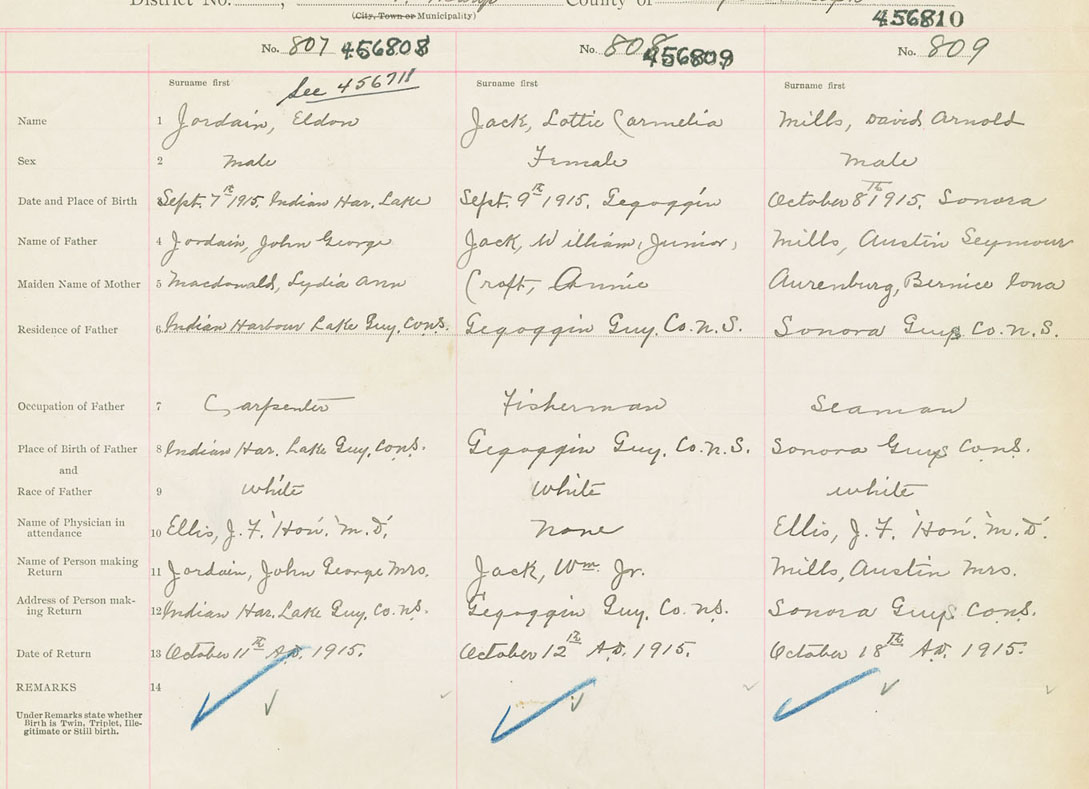 District No. , County of
(City, Town or Municipality)
456810
No. 807 456808 No. 808 456809 No. 809
Surname first See 456711 Surname first Surname first
Name 1 Jordain, Eldon Jack, Lottie Carmelia Mills, David Arnold
Sex 2 male Female male
Date and Place of Birth 3 Sept. 7th 1915. Indian Har. Lake Sept. 9th 1915. Gegoggin October 8th 1915. Sonora
Name of Father 4 Jordain, John George Jack, William, Junior, Mills, Austin Seymour
Maiden Name of Mother 5 Macdonald, Lydia Ann Croft, Annie Aurenburg, Bernice Iona
Residence of Father 6 Indian Harbour Lake Guy. Co N.S. Gegoggin Guy. Co. N.S. Sonora Guys Co. N.S.
Occupation of Father 7 Carpenter Fisherman Seaman
Place of Birth of Father 8 Indian Har. Lake Guy. Co N.S. Gegoggin Guy. Co. N.S. Sonora Guys Co N.S.
and
Race of Father 9 white White white
Name of Physician in attendance 10 Ellis, J. F. 'Hon'. 'M. D'. None Ellis, J. F. 'Hon'. 'M. D'.
Name of Person making Return 11 Jordain, John George Mrs. Jack, Wm. Jr. Mills, Austin Mrs.
Address of Person making Return 12 Indian Har. Lake Guy. Co. N.S. Gegoggin Guy. Co. N.S. Sonora Guys. Co N.S.
Date of Return 13 October 11th A.D. 1915. October 12th A.D. 1915. October 18th A.D. 1915.
REMARKS 14
Under Remarks state whether
Birth is Twin, Triplet, Ille-
gitimate or Still birth.